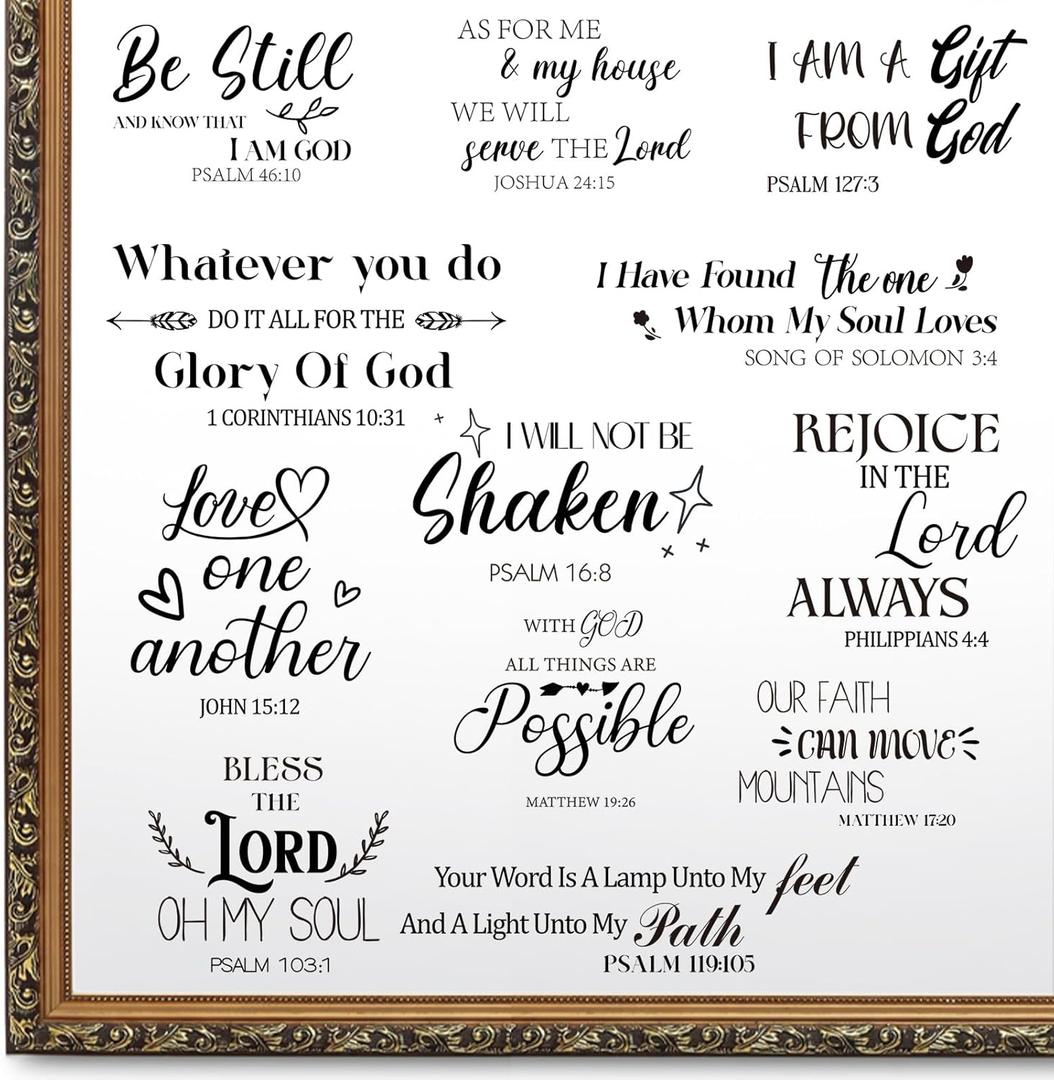 Be Still
AND KNOW THAT
I AM GOD
PSALM 46:10
AS FOR ME
& my house
WE WILL
serve THE Lord
JOSHUA 24:15
I AM A Gift
FROM God
PSALM 127:3
Whatever you do
DO IT ALL FOR THE
Glory Of God
1 CORINTHIANS 10:31
I Have Found the one
Whom My Soul Loves
SONG OF SOLOMON 3:4
Love
one
another
JOHN 15:12
I WILL NOT BE
Shaken
PSALM 16:8
REJOICE
IN THE
Lord
ALWAYS
PHILIPPIANS 4:4
WITH GOD
ALL THINGS ARE
Possible
MATTHEW 19:26
OUR FAITH
CAN MOVE
MOUNTAINS
MATTHEW 17:20
BLESS
THE
LORD
OH MY SOUL
PSALM 103:1
Your Word Is A Lamp Unto My feet
And A Light Unto My Path
PSALM 119:105